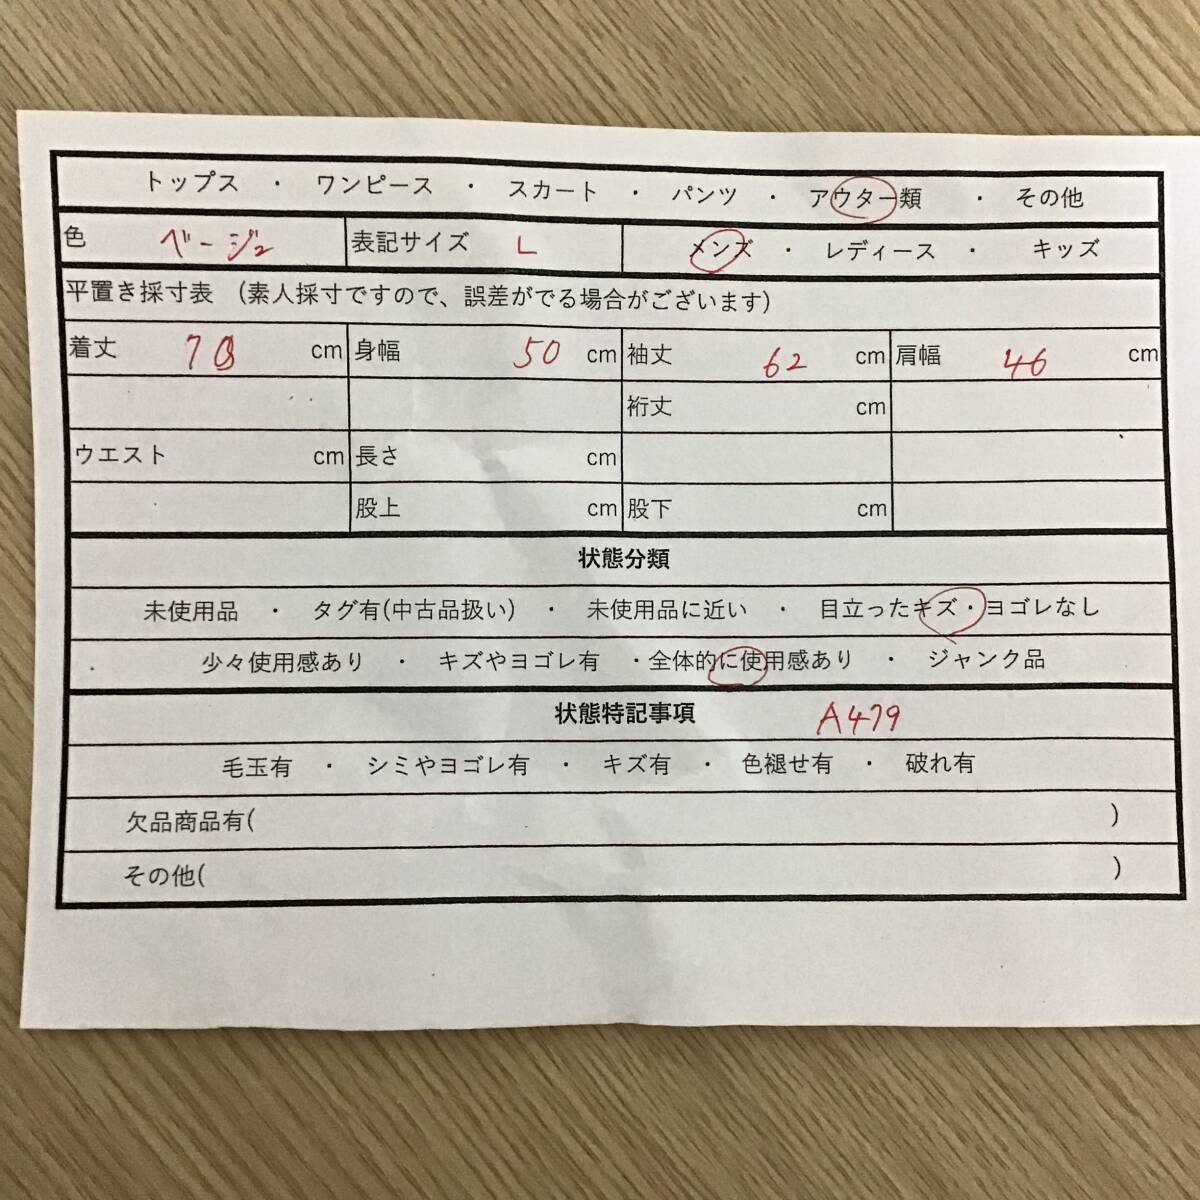 トップス ・ ワンピース ・ スカート ・ パンツ ・ アウター類 ・ その他
色 ベージュ 表記サイズ L メンズ ・ レディース ・ キッズ
平置き採寸表 (素人採寸ですので、誤差がでる場合がございます)
着丈 cm 身幅 50 cm 袖丈 62 cm 肩幅 46 cm
裄丈 cm
ウエスト cm 長さ cm
股上 cm 股下 cm
状態分類
未使用品 ・ タグ有(中古品扱い) ・ 未使用品に近い ・ 目立ったキズ・ヨゴレなし
少々使用感あり ・ キズやヨゴレ有 ・全体的に使用感あり ・ ジャンク品
状態特記事項 A479
毛玉有 ・ シミやヨゴレ有 ・ キズ有 ・ 色褪せ有 ・ 破れ有
欠品商品有( )
その他( )